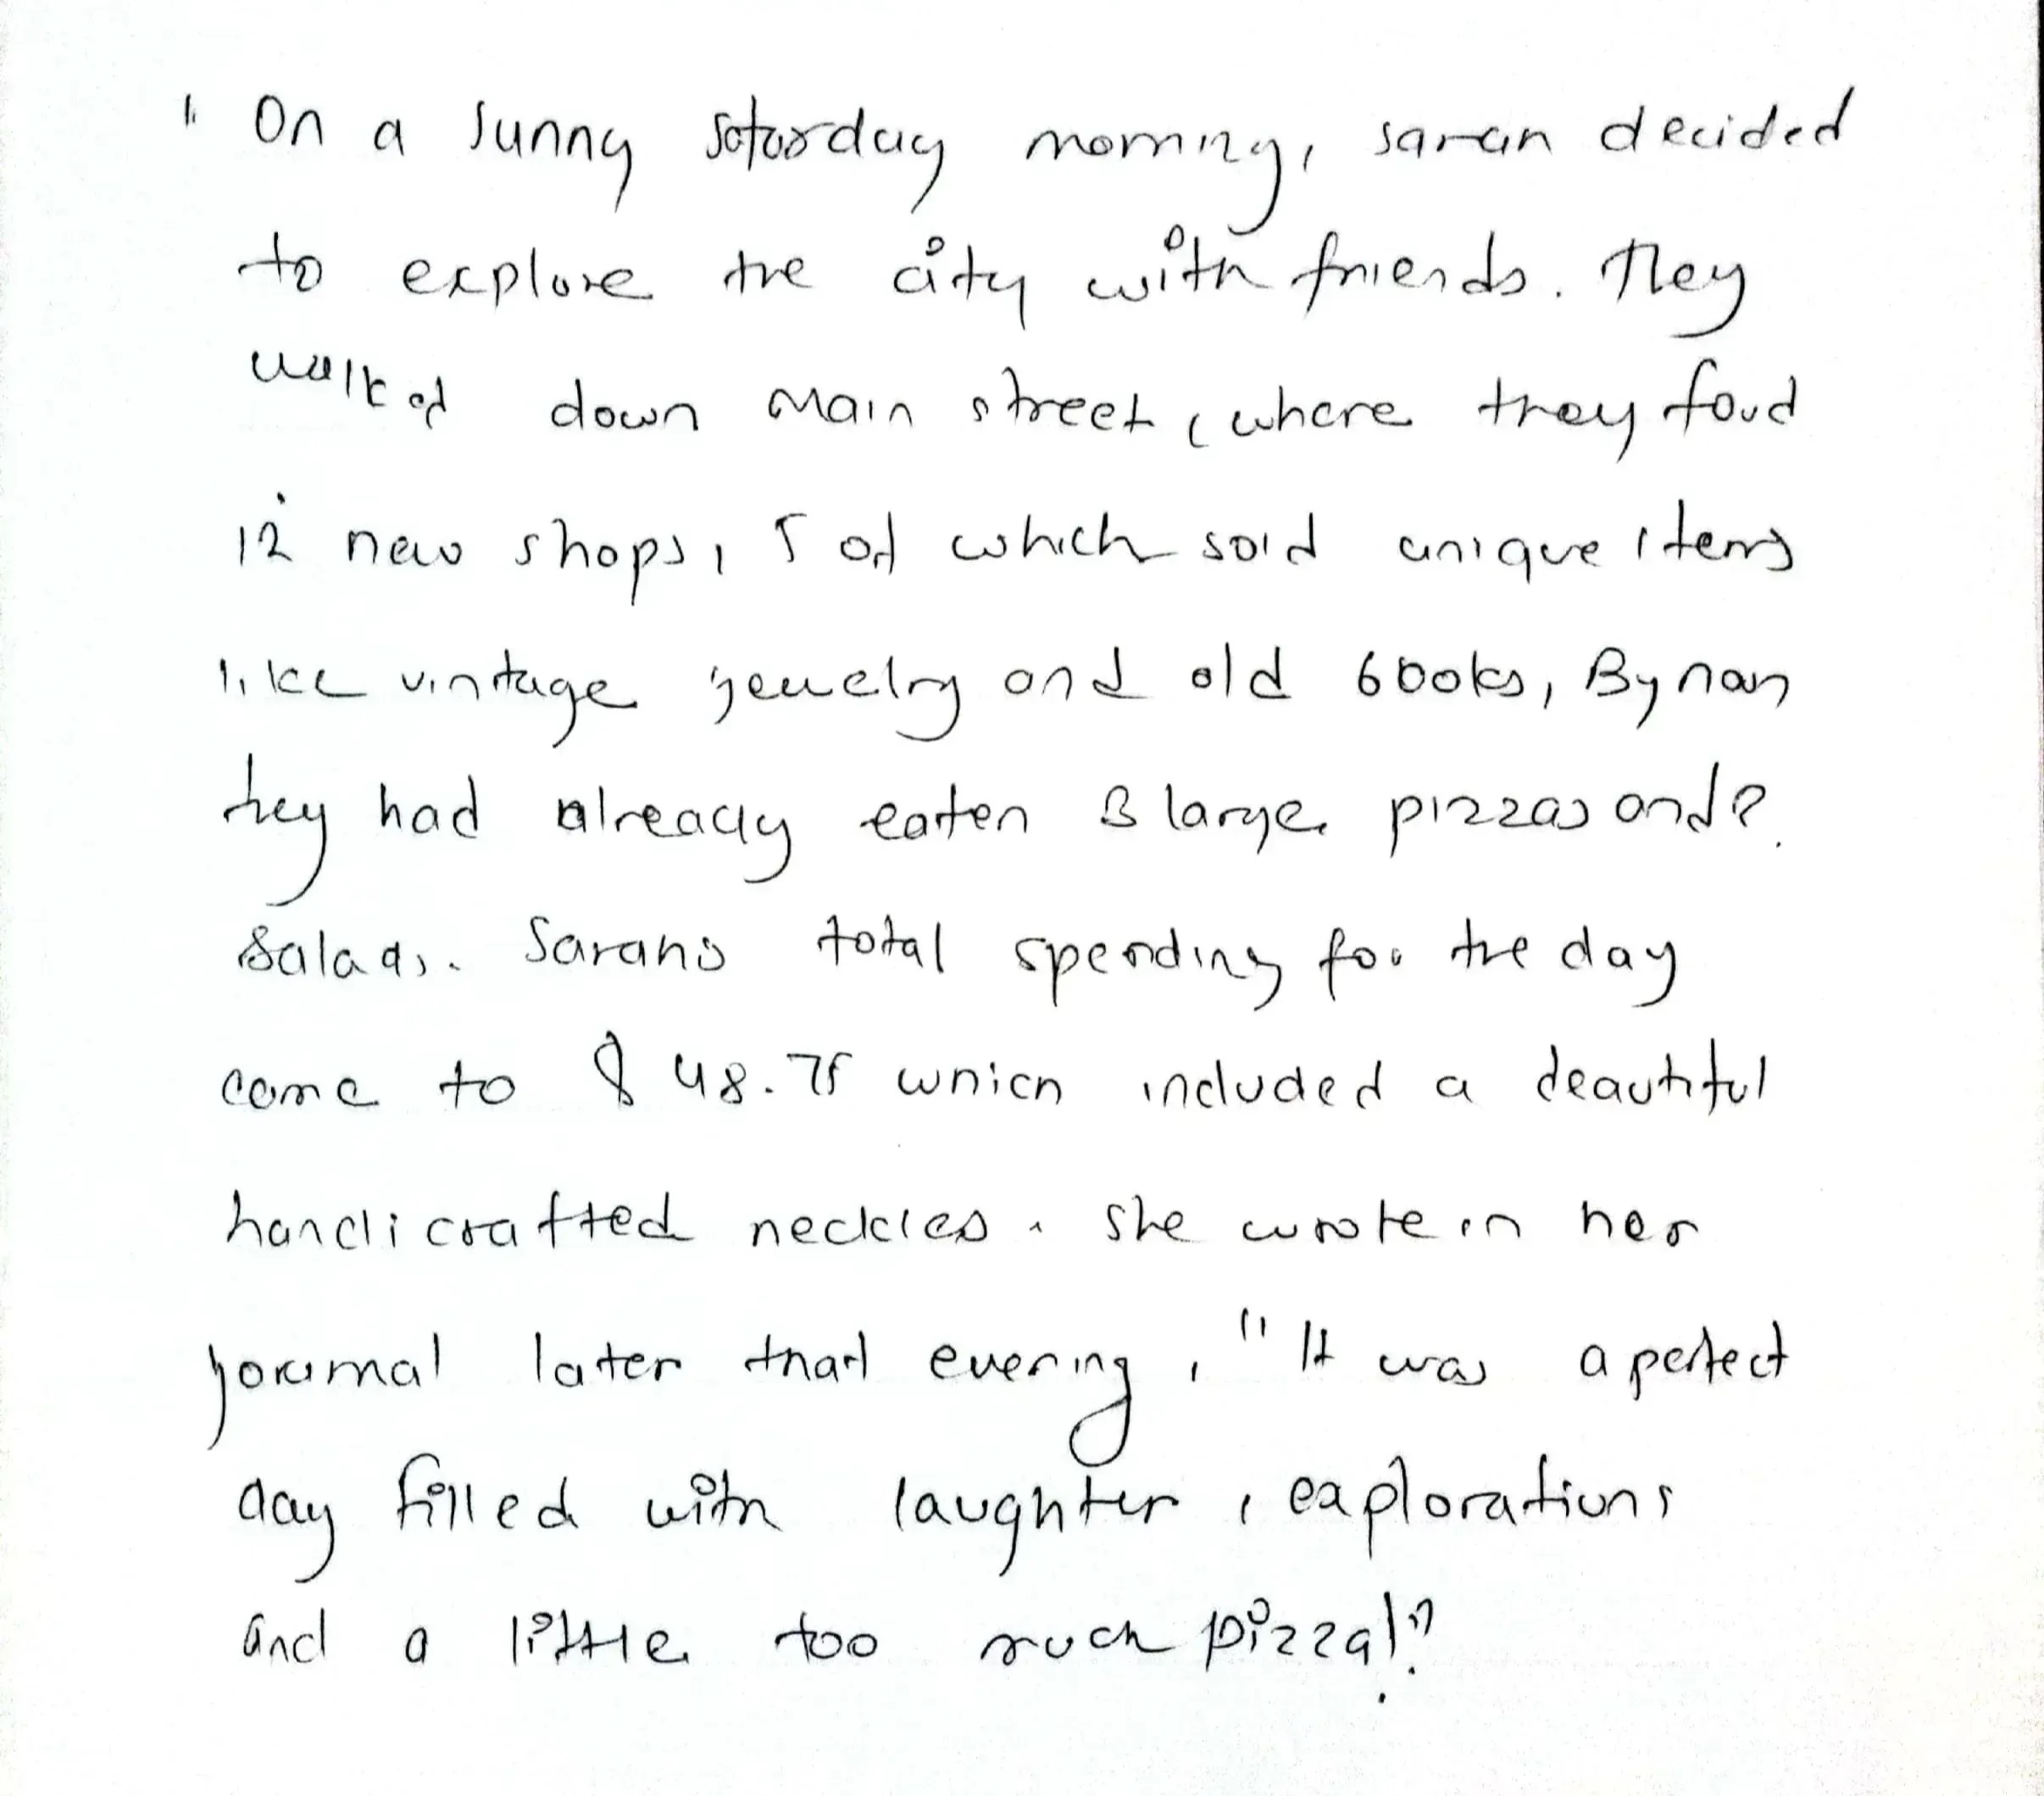 " On a sunny saturday morning, sarah decided
to explore the city with friends. They
walked down Main street, where they foud
12 new shops, 5 of which sold unique items
like vintage jewelry and old books, By noon
they had already eaten 3 large pizzas and 2
Salads. Sarah's total spending for the day
came to $ 48.75 which included a beautiful
handicrafted neckles. she wrote in her
journal later that evening, "It was a perfect
day filled with laughter, explorations
and a little too much pizza!"